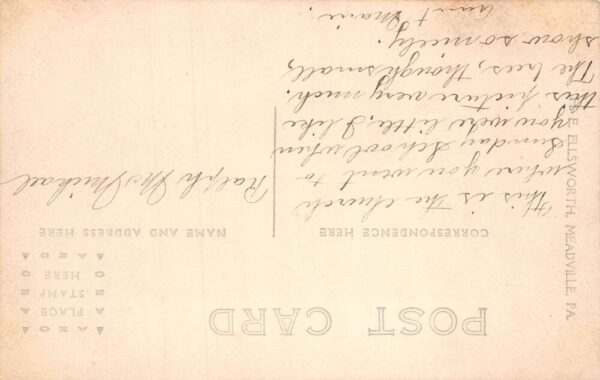 POST CARD
CORRESPONDENCE HERE
NAME AND ADDRESS HERE
AZO
PLACE
STAMP
HERE
AZO
This is the church
where you went to
Sunday School when
you were little. I like
this picture very much.
The trees, though small,
show so nicely.
Aunt Marie.
Ralph McMichael
ELLSWORTH, MEADVILLE, PA.